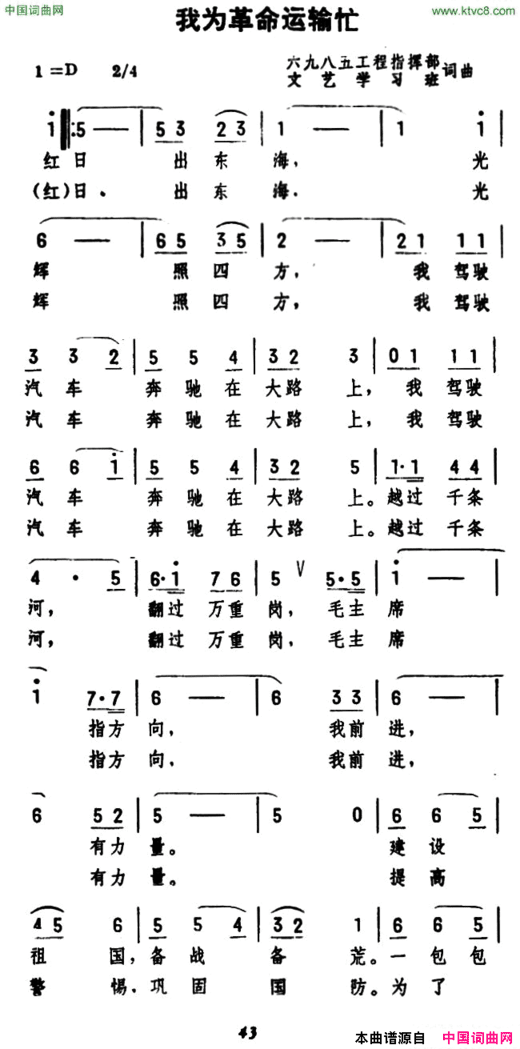 中国词曲网
www.ktvc8.com
我为革命运输忙
1=D 2/4
六九八五工程指挥部
文艺学习班 词曲
i 5 — 5 3 2 3 1 — 1 i
红日 出东海，光
(红)日. 出东海.光
6 — 6 5 3 5 2 — 2 1 1 1
辉 照四方，我驾驶
辉 照四方，我驾驶
3 3 2 5 5 4 3 2 3 0 1 1 1
汽车 奔驰在大路上，我驾驶
汽车 奔驰在大路上，我驾驶
6 6 i 5 5 4 3 2 5 1·1 4 4
汽车 奔驰在大路上。越过千条
汽车 奔驰在大路上。越过千条
4 · 5 6·i 7 6 5 V 5·5 i —
河，翻过万重岗，毛主席
河，翻过万重岗，毛主席
i 7·7 6 — 6 3 3 6 —
指方向，我前进，
指方向，我前进，
6 5 2 5 — 5 0 6 6 5
有力量。建设
有力量。提高
4 5 6 5 5 4 3 2 1 6 6 5
祖国，备战备荒。一包包
警惕，巩固国防。为了
43
本曲谱源自 中国词曲网